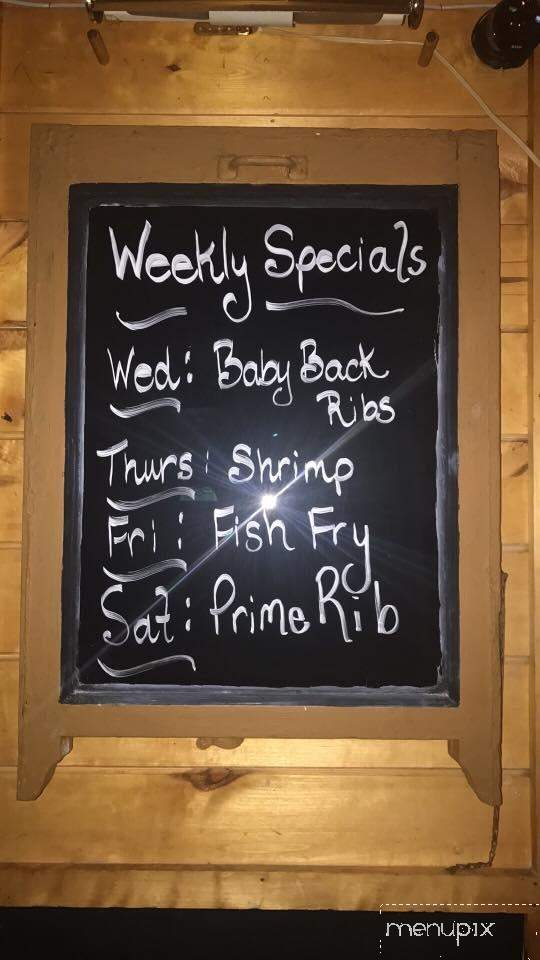 Weekly Specials
Wed: Baby Back
Ribs
Thurs: Shrimp
Fri: Fish Fry
Sat: Prime Rib
menupix